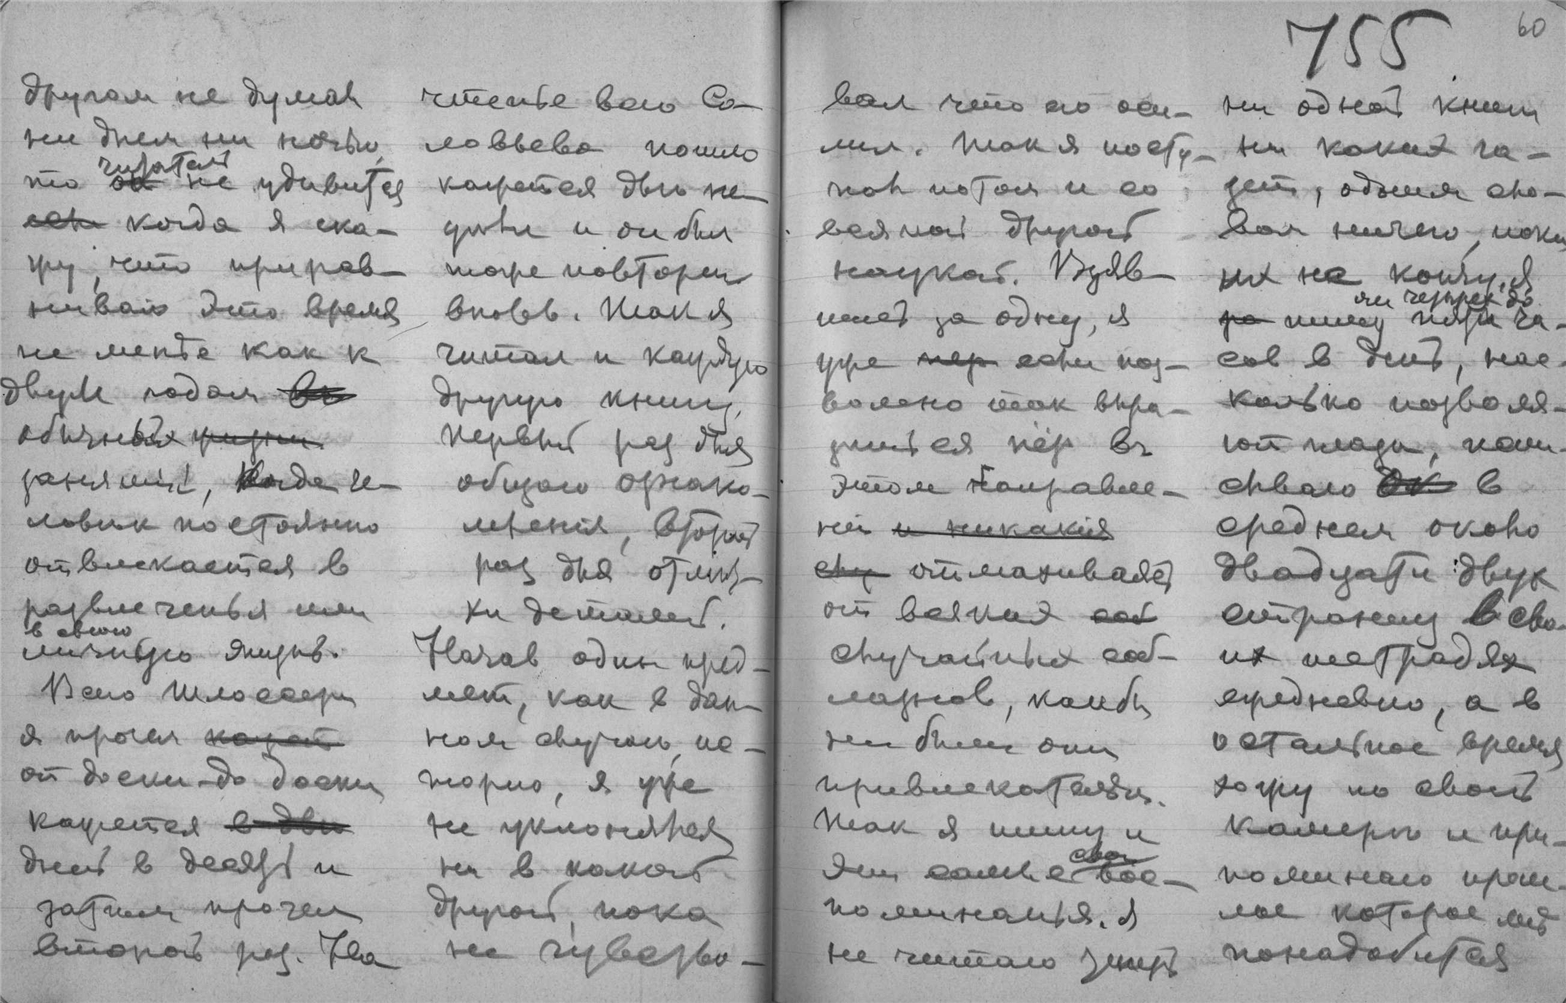 другом не думая
ни днем ни ночью,
читатель
то не удивится
когда я ска-
жу, что прирав-
ниваю это время
не менее как к
двум годам
обычных жизни
занятий, когда че-
ловек постоянно
отвлекается в
развлеченья или
в свою
личную жизнь.
Всего Шлоссера
я прочел
от доски до доски
кажется в два
дней в десять и
затем прочел
второй раз. На
чтенье всего Со-
ловьева пошло
кажется две не-
дели и он был
тоже повторен
вновь. Так я
читал и каждую
другую книгу,
первый раз для
общего ознако-
мленія, второй
раз для отмет-
ки деталей.
Начав один пред-
мет, как в дан-
ном случае, ис-
торию, я уже
не уклонялся
ни в какой
другой, пока
не чувство-
755
60
вал что его оси-
лил. Так я посту-
пал потом и со
всякой другой
наукой. Взяв-
шись за одну, я
уже если поз-
волено так выра-
зиться пёр въ
этом направле-
нии и никакия
отмахиваясь
от всяких
случайных соб-
лазнов, как бы
ни были они
привлекательны.
Так я пишу и
свои
эти самые вос-
поминанья. Я
не читаю теперь
ни одной книги
ни каких га-
зет, одним сло-
вом ничего, пока
их не кончу. Я
или четырех до
пишу пяти ча-
сов в день, нас-
колько позволя-
ют глаза, испи-
сываю в
среднем около
двадцати двух
страниц в сво-
их тетрадях
ежедневно, а в
остальное время
хожу по своей
камере и при-
поминаю прош-
лое которое мне
понадобится